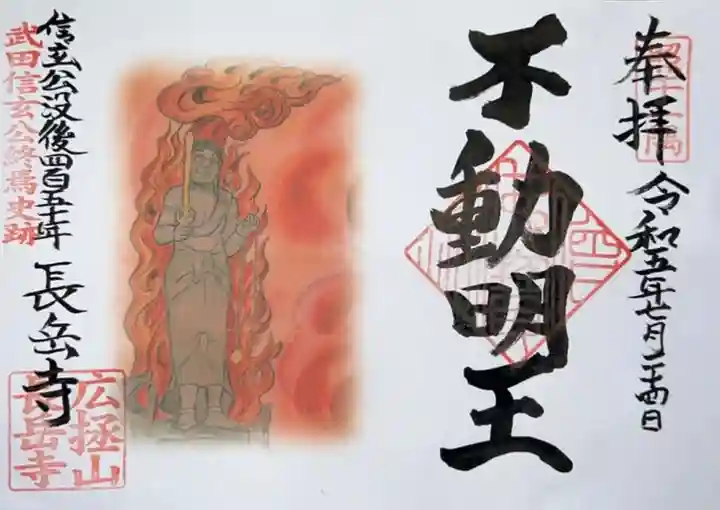 奉拝
令和五年七月二十四日
不動明王
信玄公没後四百五十年
武田信玄公終焉史跡
長岳寺
広拯山
長岳寺